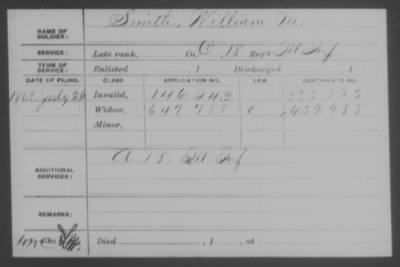 Smith, William M.
NAME OF SOLDIER:
SERVICE: Late rank, Co. C, 18 Reg't Ill Inf
TERM OF SERVICE: Enlisted , 1 Discharged , 1
DATE OF FILING. CLASS. APPLICATION NO. LAW. CERTIFICATE NO.
July 26 Invalid, 146.243
Widow, 647.788
Minor,
A 18. Ill Inf
ADDITIONAL SERVICES:
REMARKS:
Died , 1 , at